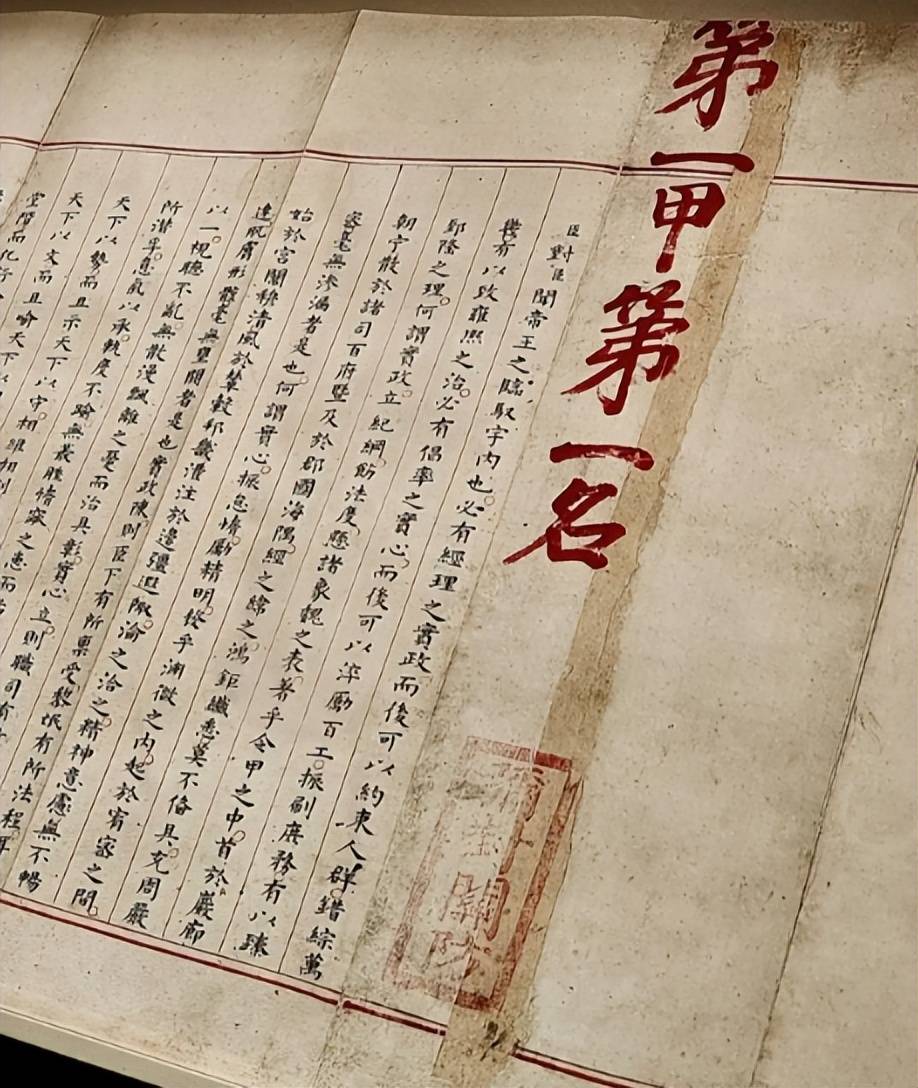 第一甲第一名
臣對臣聞帝王之臨馭宇內也。必有經理之實政而後可以約束人群。錯綜萬
幾有以致雍熙之治。必有倡率之實心。而後可以淬勵百工。振刷庶務。有以臻
郅隆之理。何謂實政。立紀綱。飭法度。懸諸象魏之表。著乎令甲之中。首於巖廊
朝宁散於諸司百府暨及於郡國海隅。經之緯之。鴻鉅纖悉莫不備具。充周嚴
密毫無滲漏者是也。何謂實心。振怠惰。勵精明。發乎淵微之內。起於宥密之間。
始於宮闈穆清風於輦轂邦畿灌注於邊疆遐陬。淪之洽之。精神意慮無不暢
達肌膚形骸毫無壅閼者是也實政陳。則臣下有所稟受。黎氓有所法程耳
以一。視聽不亂。無散漫飄離之憂而治具彰。實心立。則職司有
所潛孚。意氣以承。軌度不踰。無叢脞惰窳之患而治
天下以勢而且示天下以守。相維相制
天下以文而且喻天下以
堂階而化行
彌封關防